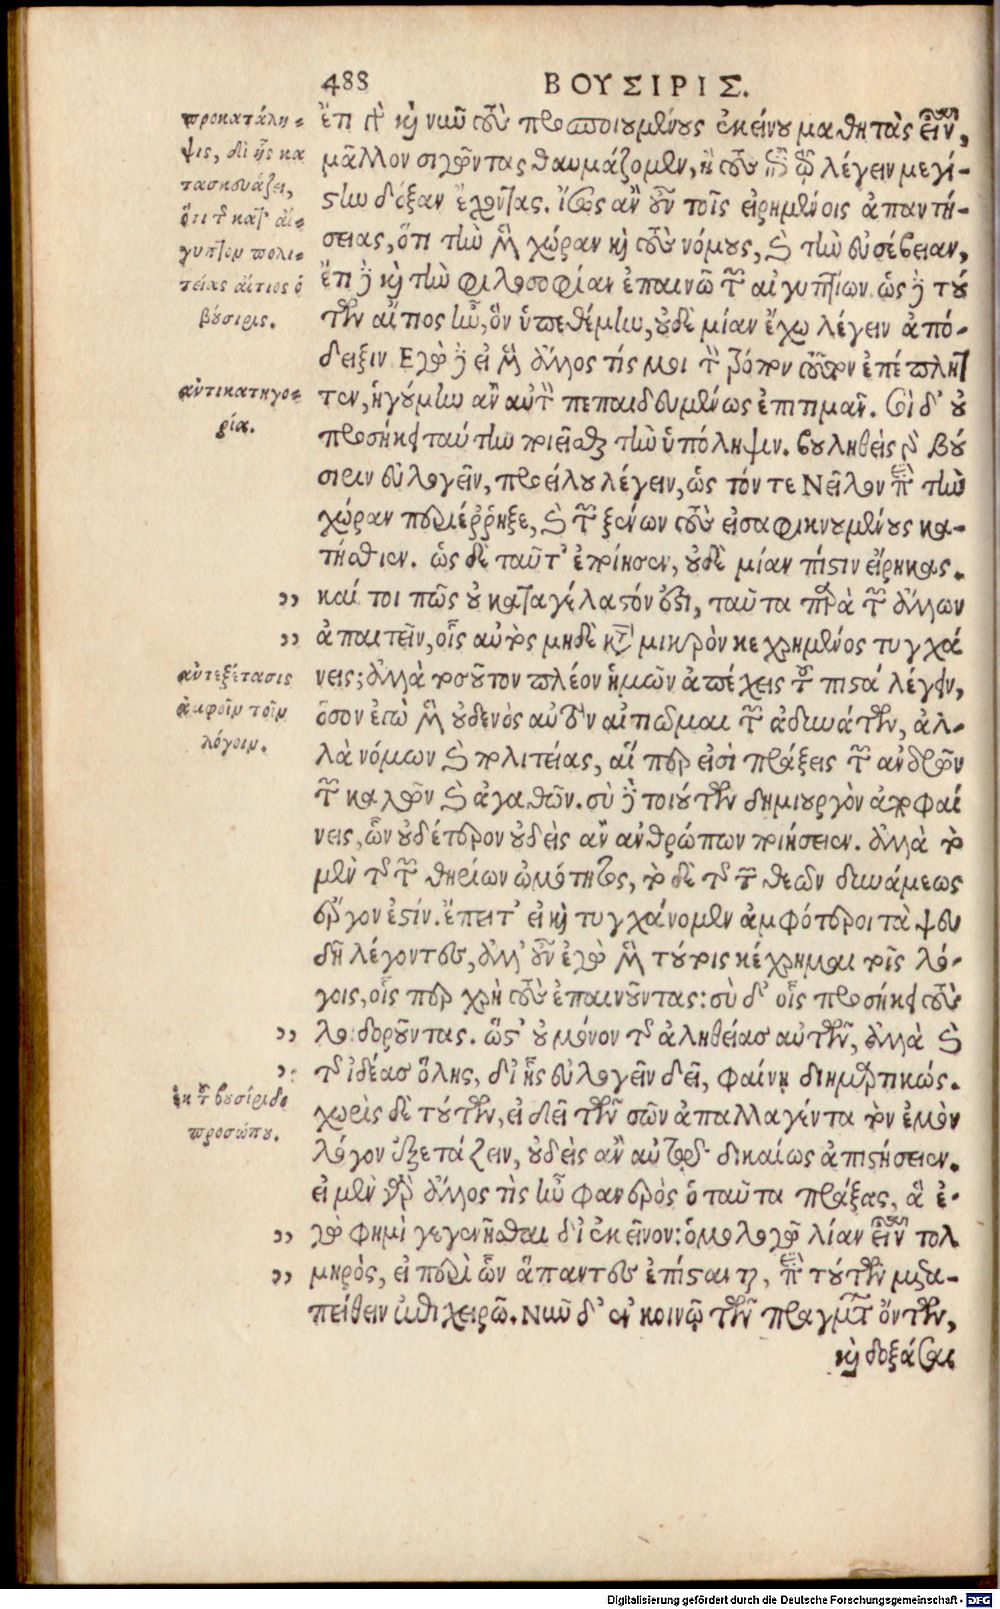 488 ΒΟΥΣΙΡΙΣ.
ἔτι γὰρ καὶ νῦν τοὺς προσποιουμένους ἐκείνου μαθητὰς εἶναι,
μᾶλλον σιγῶντας θαυμάζομεν, ἢ τοὺς ἐπὶ τῷ λέγειν μεγί-
στην δόξαν ἔχοντας. ἴσως ἂν οὖν τοῖς εἰρημένοις ἀπαντή-
σειας, ὅτι τὴν μὲν χώραν καὶ τοὺς νόμους, καὶ τὴν εὐσέβειαν,
ἔτι δὲ καὶ τὴν φιλοσοφίαν ἐπαινῶ τῶν αἰγυπτίων. ὡς δὲ τού
των αἴτιος ἦν, ὃν ὑπεθέμην, οὐδὲ μίαν ἔχω λέγειν ἀπό-
δειξιν. Ἐγὼ δὲ εἰ μὲν ἄλλος τίς μοι τὸν τρόπον τοῦτον ἐπέπλητ
τεν, ἡγούμην ἂν αὐτὸν πεπαιδευμένως ἐπιτιμᾶν. σοὶ δ' οὐ
προσήκει ταύτην ποιεῖσθαι τὴν ὑπόληψιν. βουληθεὶς γὰρ βού
σιριν εὐλογεῖν, προείλου λέγειν, ὡς τόν τε Νεῖλον περὶ τὴν
χώραν περιέῤῥηξε, καὶ τῶν ξένων τοὺς εἰσαφικνουμένους κα-
τήσθιεν. ὡς δὲ ταῦτ' ἐποίησεν, οὐδὲ μίαν πίστιν εἴρηκας.
,, καί τοι πῶς οὐ καταγέλαστόν ἐστι, ταῦτα παρὰ τῶν ἄλλων
,, ἀπαιτεῖν, οἷς αὐτὸς μηδὲ κατὰ μικρὸν κεχρημένος τυγχά
νεις; ἀλλὰ τοσοῦτον πλέον ἡμῶν ἀπέχεις τοῦ πιστά λέγειν,
ὅσον ἐγὼ μὲν οὐδενὸς αὐτὸν αἰτιῶμαι τῶν ἀδυνάτων, ἀλ-
λὰ νόμων καὶ πολιτείας, αἵ περ εἰσὶ πράξεις τῶν ἀνδρῶν
τῶν καλῶν καὶ ἀγαθῶν. σὺ δὲ τοιούτων δημιουργὸν ἀποφαί
νεις, ὧν οὐδέτερον οὐδεὶς ἂν ἀνθρώπων ποιήσειεν. ἀλλὰ τὸ
μὲν τῆς τῶν θηρίων ὠμότητος, τὸ δὲ τῆς τῶν θεῶν δυνάμεως
ἔργον ἐστίν. ἔπειτ' εἰ καὶ τυγχάνομεν ἀμφότεροι τὰ ψευ
δῆ λέγοντες, ἀλλ' οὖν ἐγὼ μὲν τούτοις κέχρημαι τοῖς λό-
γοις, οἷς περ χρὴ τοὺς ἐπαινοῦντας: σὺ δ' οἷς προσήκει τοὺς
,, λοιδοροῦντας. ὥστ' οὐ μόνον τῆς ἀληθείας αὐτῶν, ἀλλὰ καὶ
,, τῆς ἰδέας ὅλης, δι' ἧς εὐλογεῖν δεῖ, φαίνῃ διημαρτικώς.
χωρὶς δὲ τούτων, εἰ δεῖ τῶν σῶν ἀπαλλαγέντα τὸν ἐμὸν
λόγον ἐξετάζειν, οὐδεὶς ἂν αὐτῷ δικαίως ἀπιστήσειεν.
εἰ μὲν γὰρ ἄλλος τὶς ἦν φανερὸς ὁ ταῦτα πράξας, ἃ ἐ-
,, γὼ φημὶ γεγενῆσθαι δι' ἐκεῖνον: ὁμολογῶ λίαν εἶναι τολ
,, μηρὸς, εἰ περὶ ὧν ἅπαντες ἐπίστανται, περὶ τούτων μετα-
πείθειν ἐπιχειρῶ. Νῦν δ' ἐν κοινῷ τῶν πραγμάτων ὄντων,
καὶ δοξάσαι
προκατάλη-
ψις, δι' ἧς κα
τασκευάζει,
ὅτι τῆς κατ' αἰ-
γυπτίων πολι-
τείας αἴτιος ὁ
βύσιρις.
ἀντικατηγο-
ρία.
ἀντεξέτασις
ἀμφοῖν τοῖν
λόγοιν.
ἐκ τοῦ βουσίριδος
προσώπου.
Digitalisierung gefördert durch die Deutsche Forschungsgemeinschaft - DFG